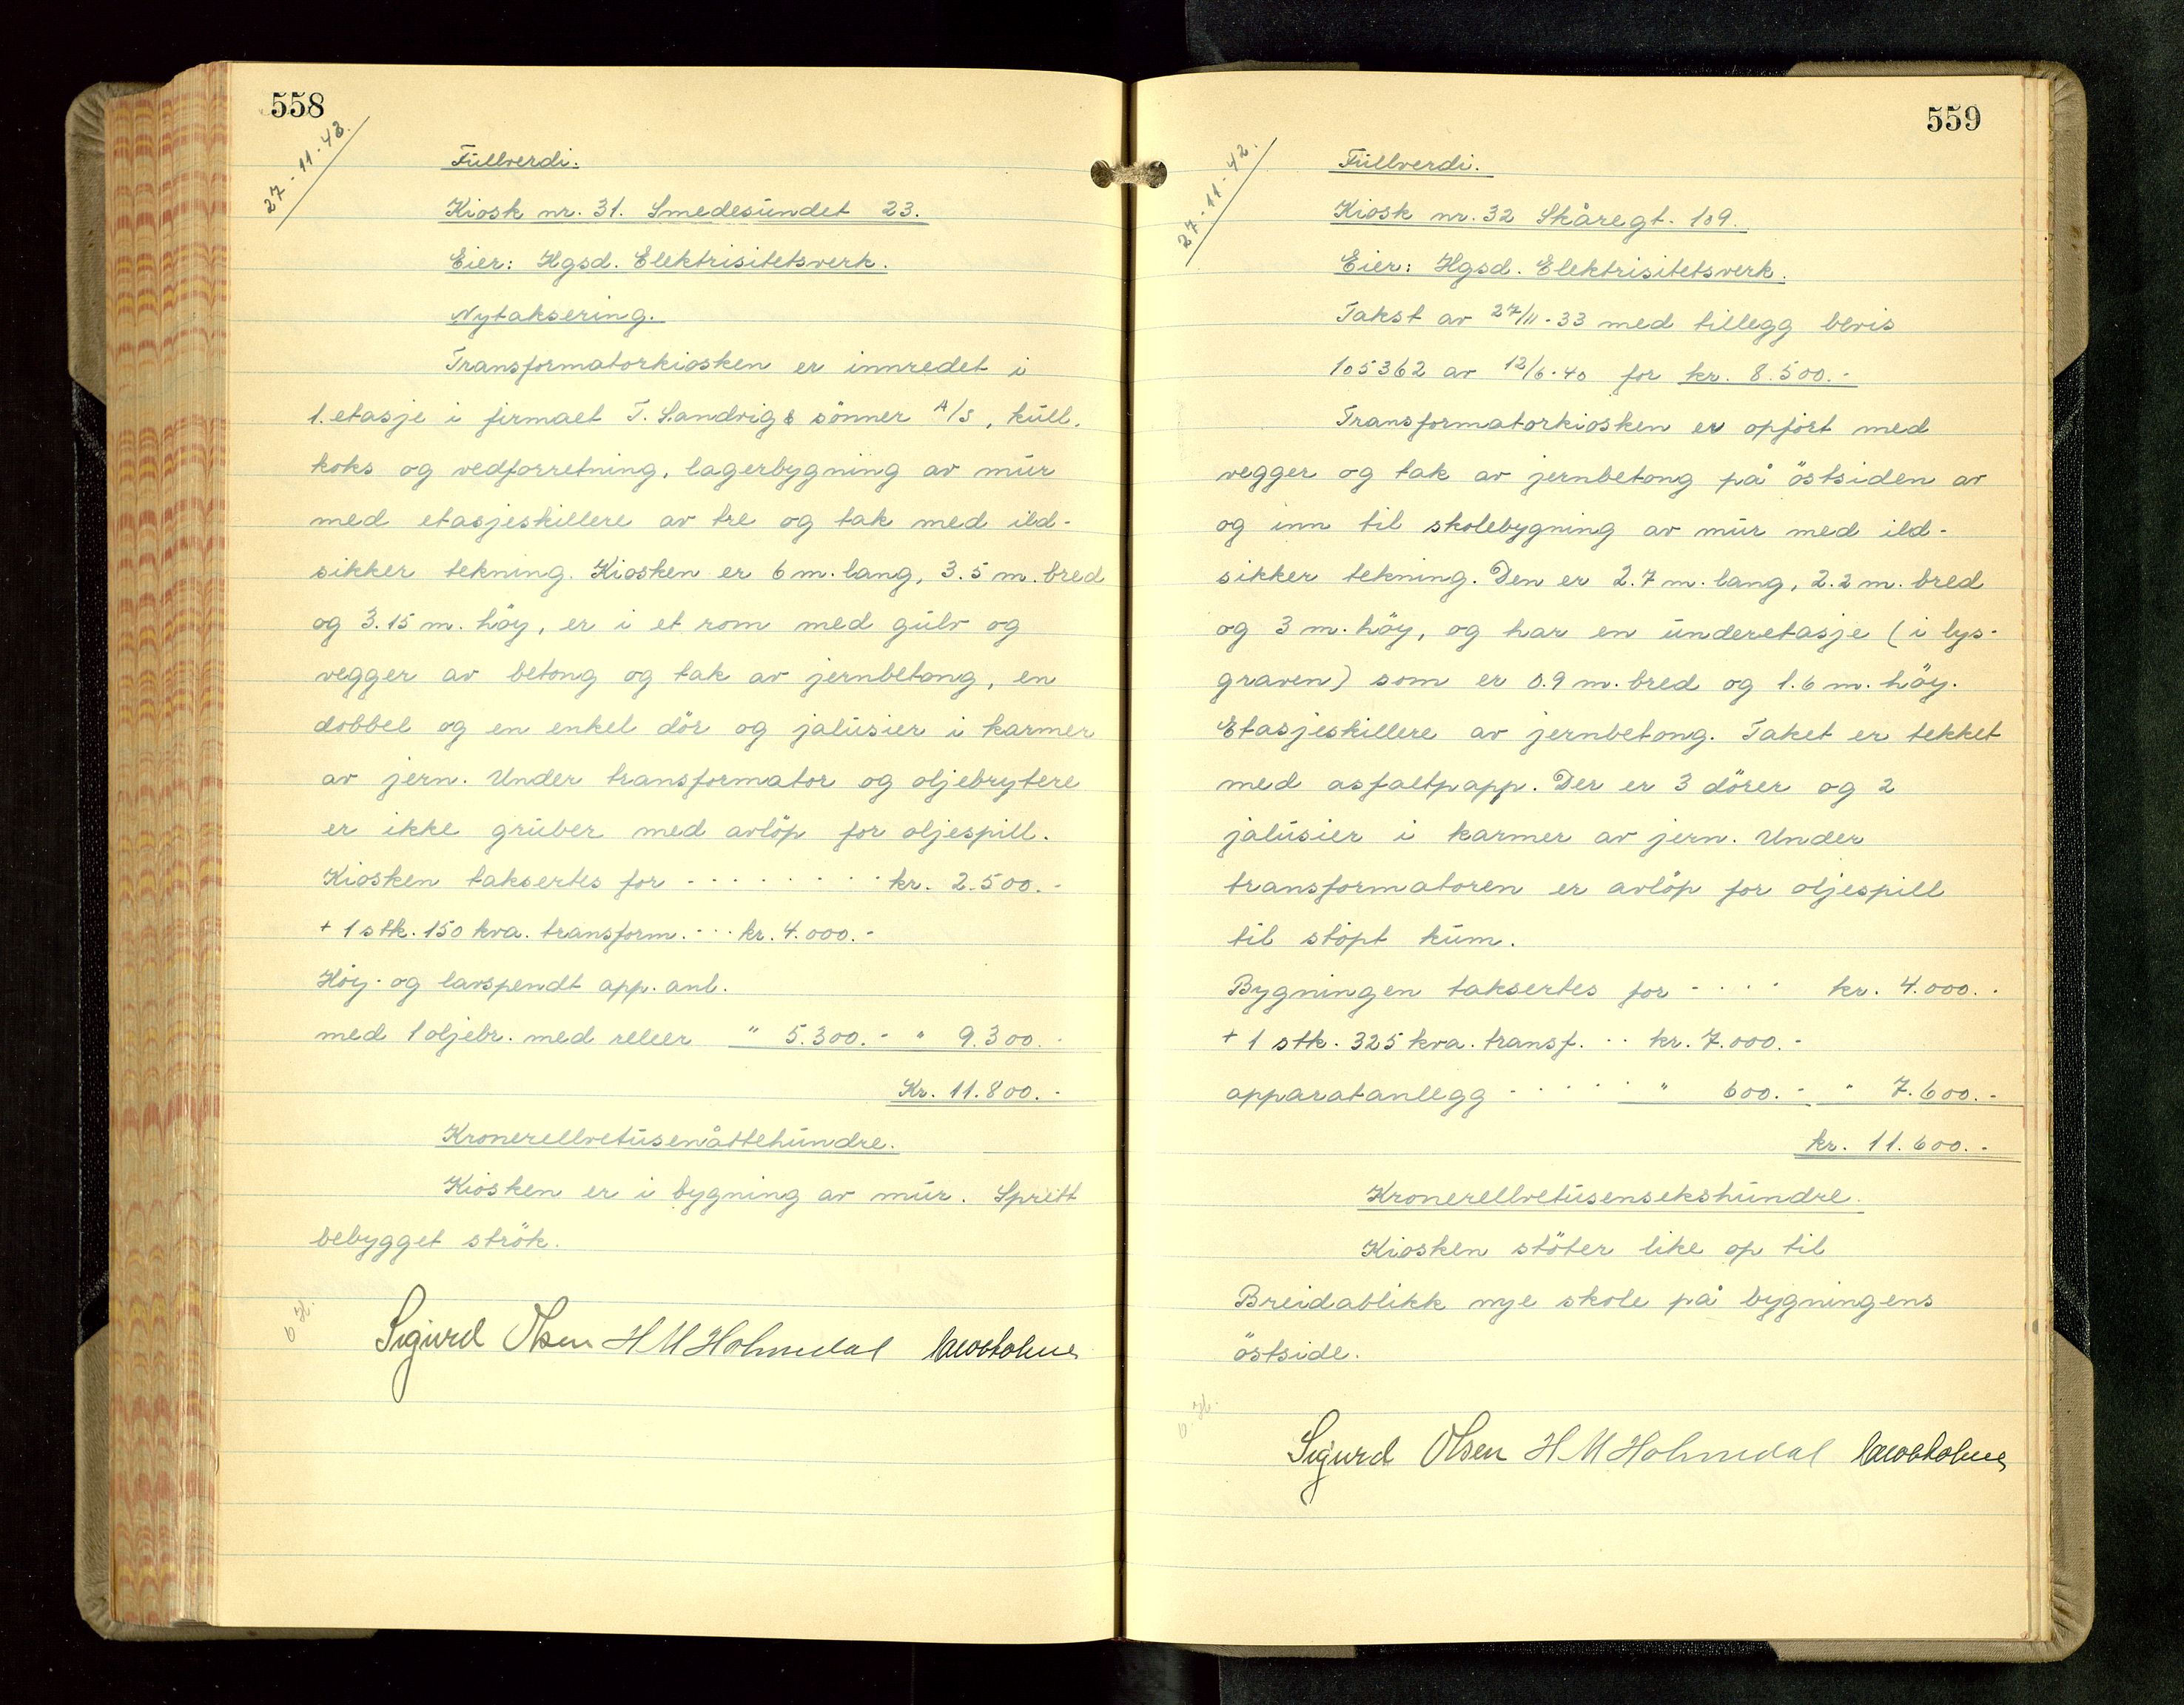 558
27-11-42.
Fullverdi.
Kiosk nr. 31. Smedesundet 23.
Eier: Hgsd. Elektrisitetsverk.
Nytaksering.
Transformatorkiosken er innredet i
1. etasje i firmaet T. Sandvig & sönner A/S, kull.
koks og vedforretning, lagerbygning av mur
med etasjeskillere av tre og tak med ild-
sikker tekning. Kiosken er 6 m. lang, 3.5 m. bred
og 3.15 m. höy, er i et rom med gulv og
vegger av betong og tak av jernbetong, en
dobbel og en enkel dör og jalusier i karmer
av jern. Under transformator og oljebrytere
er ikke gruber med avlöp for oljespill.
Kiosken taksertes for - . . . . . . . . kr. 2.500.-
+ 1 stk. 150 kva. transform. - . . kr. 4.000.-
Höy- og lavspendt app. anl.
med 1 oljebr. med releer " 5.300.- " 9.300.-
Kr. 11.800.-
Kronerellvetusenåttehundre.
Kiosken er i bygning av mur. Spredt
bebygget strök.
O.H.
Sigurd Olsen H M Holmedal
559
27-11-42.
Fullverdi.
Kiosk nr. 32 Skåregt. 109.
Eier: Hgsd. Elektrisitetsverk.
Takst av 27/11-33 med tillegg bevis
105362 av 12/6-40 for kr. 8.500.-
Transformatorkiosken er opfört med
vegger og tak av jernbetong på östsiden av
og inn til skolebygning av mur med ild-
sikker tekning. Den er 2.7 m. lang, 2.2 m. bred
og 3 m. höy, og har en underetasje (i lys-
graven) som er 0.9 m. bred og 1.6 m. höy.
Etasjeskillere av jernbetong. Taket er tekket
med asfaltpapp. Der er 3 dörer og 2
jalusier i karmer av jern. Under
transformatoren er avlöp for oljespill
til stöpt kum.
Bygningen taksertes for - . . . . kr. 4.000.-
+ 1 stk. 325 kva. transf. . . kr. 7.000.-
apparatanlegg - . . . . . " 600.- " 7.600.-
kr. 11.600.-
Kronerellvetusensekshundre.
Kiosken stöter like op til
Breidablikk nye skole på bygningens
östside.
O.H.
Sigurd Olsen H M Holmedal